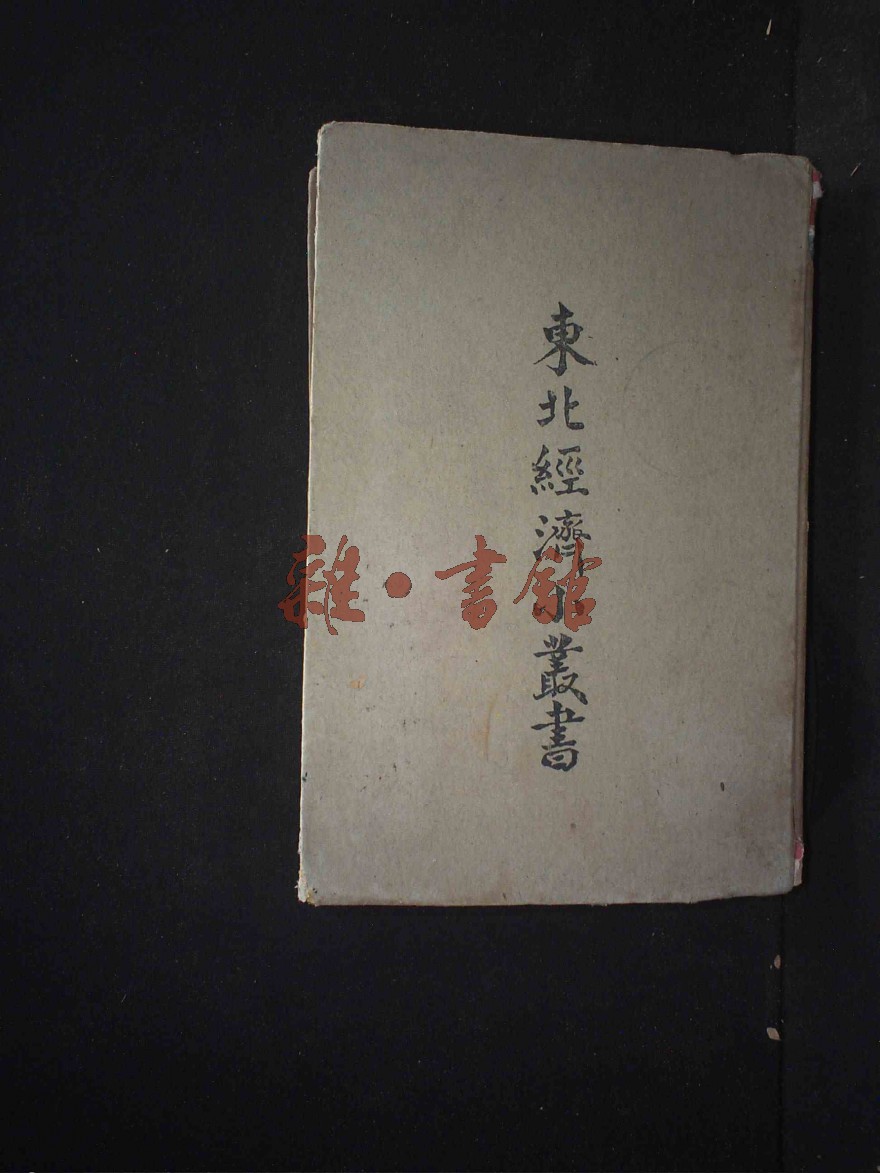 東北經濟小叢書
雜·書館